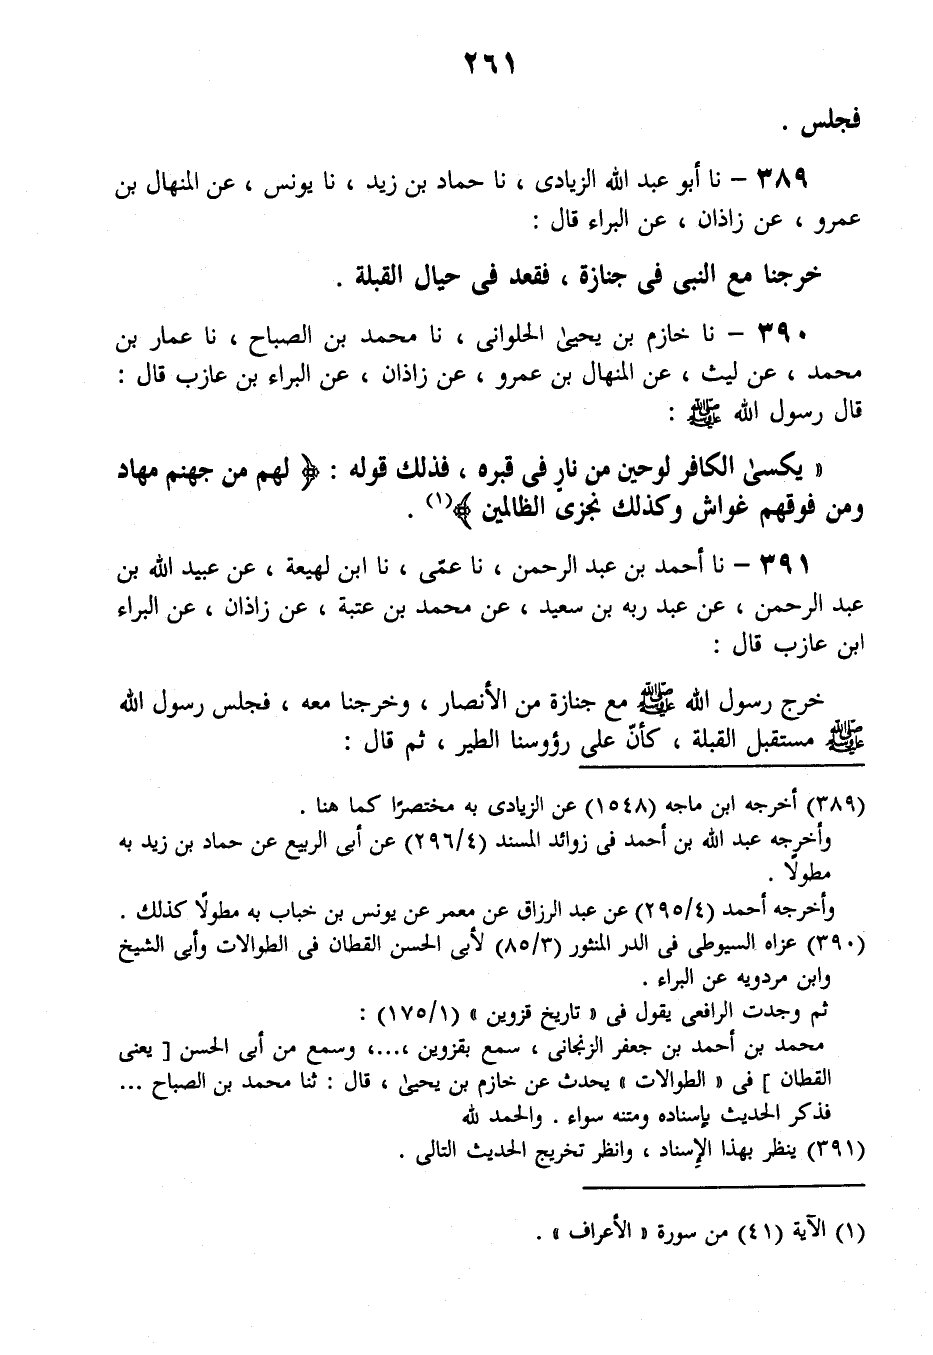 ٢٦١
فجلس .
٣٨٩ – نا أبو عبد الله الزيادى ، نا حماد بن زيد ، نا يونس ، عن المنهال بن
عمرو ، عن زاذان ، عن البراء قال :
خرجنا مع النبى فى جنازة ، فقعد فى حيال القبلة .
٣٩٠ – نا خازم بن يحيىٰ الحلوانى ، نا محمد بن الصباح ، نا عمار بن
محمد ، عن ليث ، عن المنهال بن عمرو ، عن زاذان ، عن البراء بن عازب قال :
قال رسول الله ﷺ :
« يكسىٰ الكافر لوحين من نارٍ فى قبره ، فذلك قوله : ﴿ لهم من جهنم مهاد
ومن فوقهم غواش وكذلك نجزى الظالمين ﴾(١) .
٣٩١ – نا أحمد بن عبد الرحمن ، نا عمّى ، نا ابن لهيعة ، عن عبيد الله بن
عبد الرحمن ، عن عبد ربه بن سعيد ، عن محمد بن عتبة ، عن زاذان ، عن البراء
ابن عازب قال :
خرج رسول الله ﷺ مع جنازة من الأنصار ، وخرجنا معه ، فجلس رسول الله
ﷺ مستقبل القبلة ، كأنّ على رؤوسنا الطير ، ثم قال :
(٣٨٩) أخرجه ابن ماجه (١٥٤٨) عن الزيادى به مختصرًا كما هنا .
وأخرجه عبد الله بن أحمد فى زوائد المسند (٢٩٦/٤) عن أبى الربيع عن حماد بن زيد به
مطولًا .
وأخرجه أحمد (٢٩٥/٤) عن عبد الرزاق عن معمر عن يونس بن خباب به مطولًا كذلك .
(٣٩٠) عزاه السيوطى فى الدر المنثور (٨٥/٣) لأبى الحسن القطان فى الطوالات وأبى الشيخ
وابن مردويه عن البراء .
ثم وجدت الرافعى يقول فى « تاريخ قزوين » (١٧٥/١) :
محمد بن أحمد بن جعفر الزنجانى ، سمع بقزوين ،...، وسمع من أبى الحسن [ يعنى
القطان ] فى « الطوالات » يحدث عن خازم بن يحيىٰ ، قال : ثنا محمد بن الصباح ...
فذكر الحديث بإسناده ومتنه سواء . والحمد لله
(٣٩١) ينظر بهذا الإسناد ، وانظر تخريج الحديث التالى .
(١) الآية (٤١) من سورة « الأعراف » .